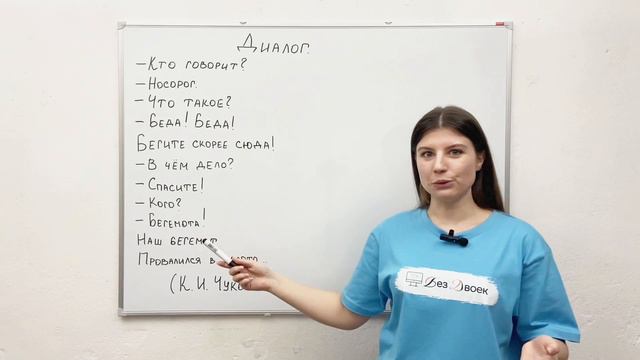 Диалог.
– Кто говорит?
– Носорог.
– Что такое?
– Беда! Беда!
Бегите скорее сюда!
– В чём дело?
– Спасите!
– Кого?
– Бегемота!
Наш бегемот
Провалился в
(К. И. Чуко
Без Двоек